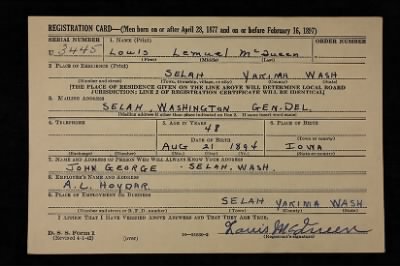 REGISTRATION CARD—(Men born on or after April 28, 1877 and on or before February 16, 1897)
SERIAL NUMBER 1. NAME (Print) ORDER NUMBER
U 3445 Louis Lemuel McQueen
(First) (Middle) (Last)
2. PLACE OF RESIDENCE (Print)
SELAH YAKIMA WASH
(Number and street) (Town, township, village, or city) (County) (State)
[THE PLACE OF RESIDENCE GIVEN ON THE LINE ABOVE WILL DETERMINE LOCAL BOARD
JURISDICTION; LINE 2 OF REGISTRATION CERTIFICATE WILL BE IDENTICAL]
3. MAILING ADDRESS
SELAH, WASHINGTON GEN. DEL.
[Mailing address if other than place indicated on line 2. If same insert word same]
4. TELEPHONE 5. AGE IN YEARS 6. PLACE OF BIRTH
48
DATE OF BIRTH
AUG 21 1894 IOWA
(Exchange) (Number) (Mo.) (Day) (Yr.) (State or country)
7. NAME AND ADDRESS OF PERSON WHO WILL ALWAYS KNOW YOUR ADDRESS
JOHN GEORGE - SELAH, WASH.
8. EMPLOYER'S NAME AND ADDRESS
A. L. HOYDAR
9. PLACE OF EMPLOYMENT OR BUSINESS
SELAH YAKIMA WASH
(Number and street or R. F. D. number) (Town) (County) (State)
I AFFIRM THAT I HAVE VERIFIED ABOVE ANSWERS AND THAT THEY ARE TRUE.
D. S. S. Form 1
(Revised 4-1-42) (over) Louis McQueen
(Registrant's signature)